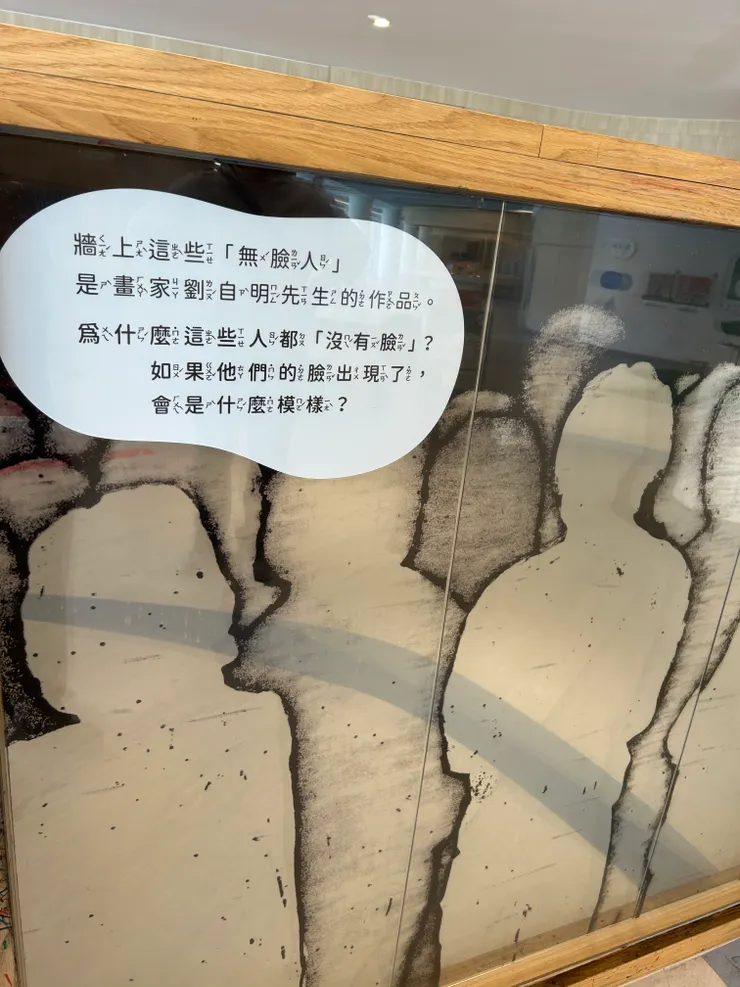 牆上這些「無臉人」
是畫家劉自明先生的作品。
為什麼這些人都「沒有臉」？
如果他們的臉出現了，
會是什麼模樣？